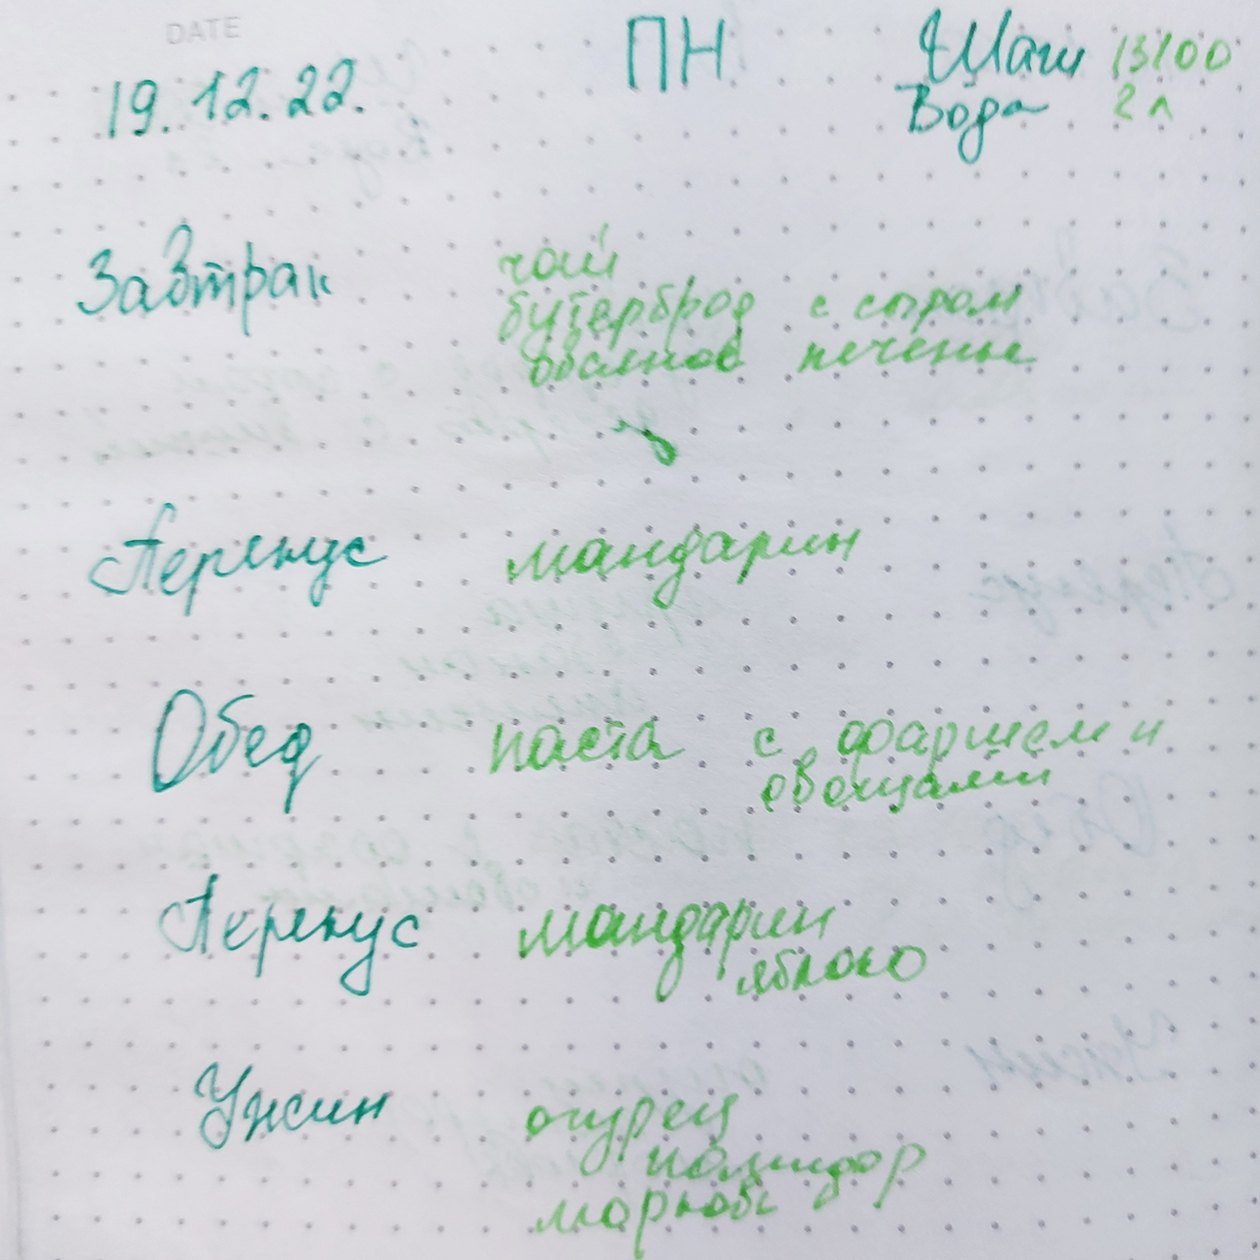 DATE
19.12.22.
ПН
Шаги 13100
Вода 2 л
Завтрак чай
бутерброд с сыром
овсяное печенье
Перекус мандарин
Обед паста с фаршем и
овощами
Перекус мандарин
яблоко
Ужин огурец
помидор
морковь